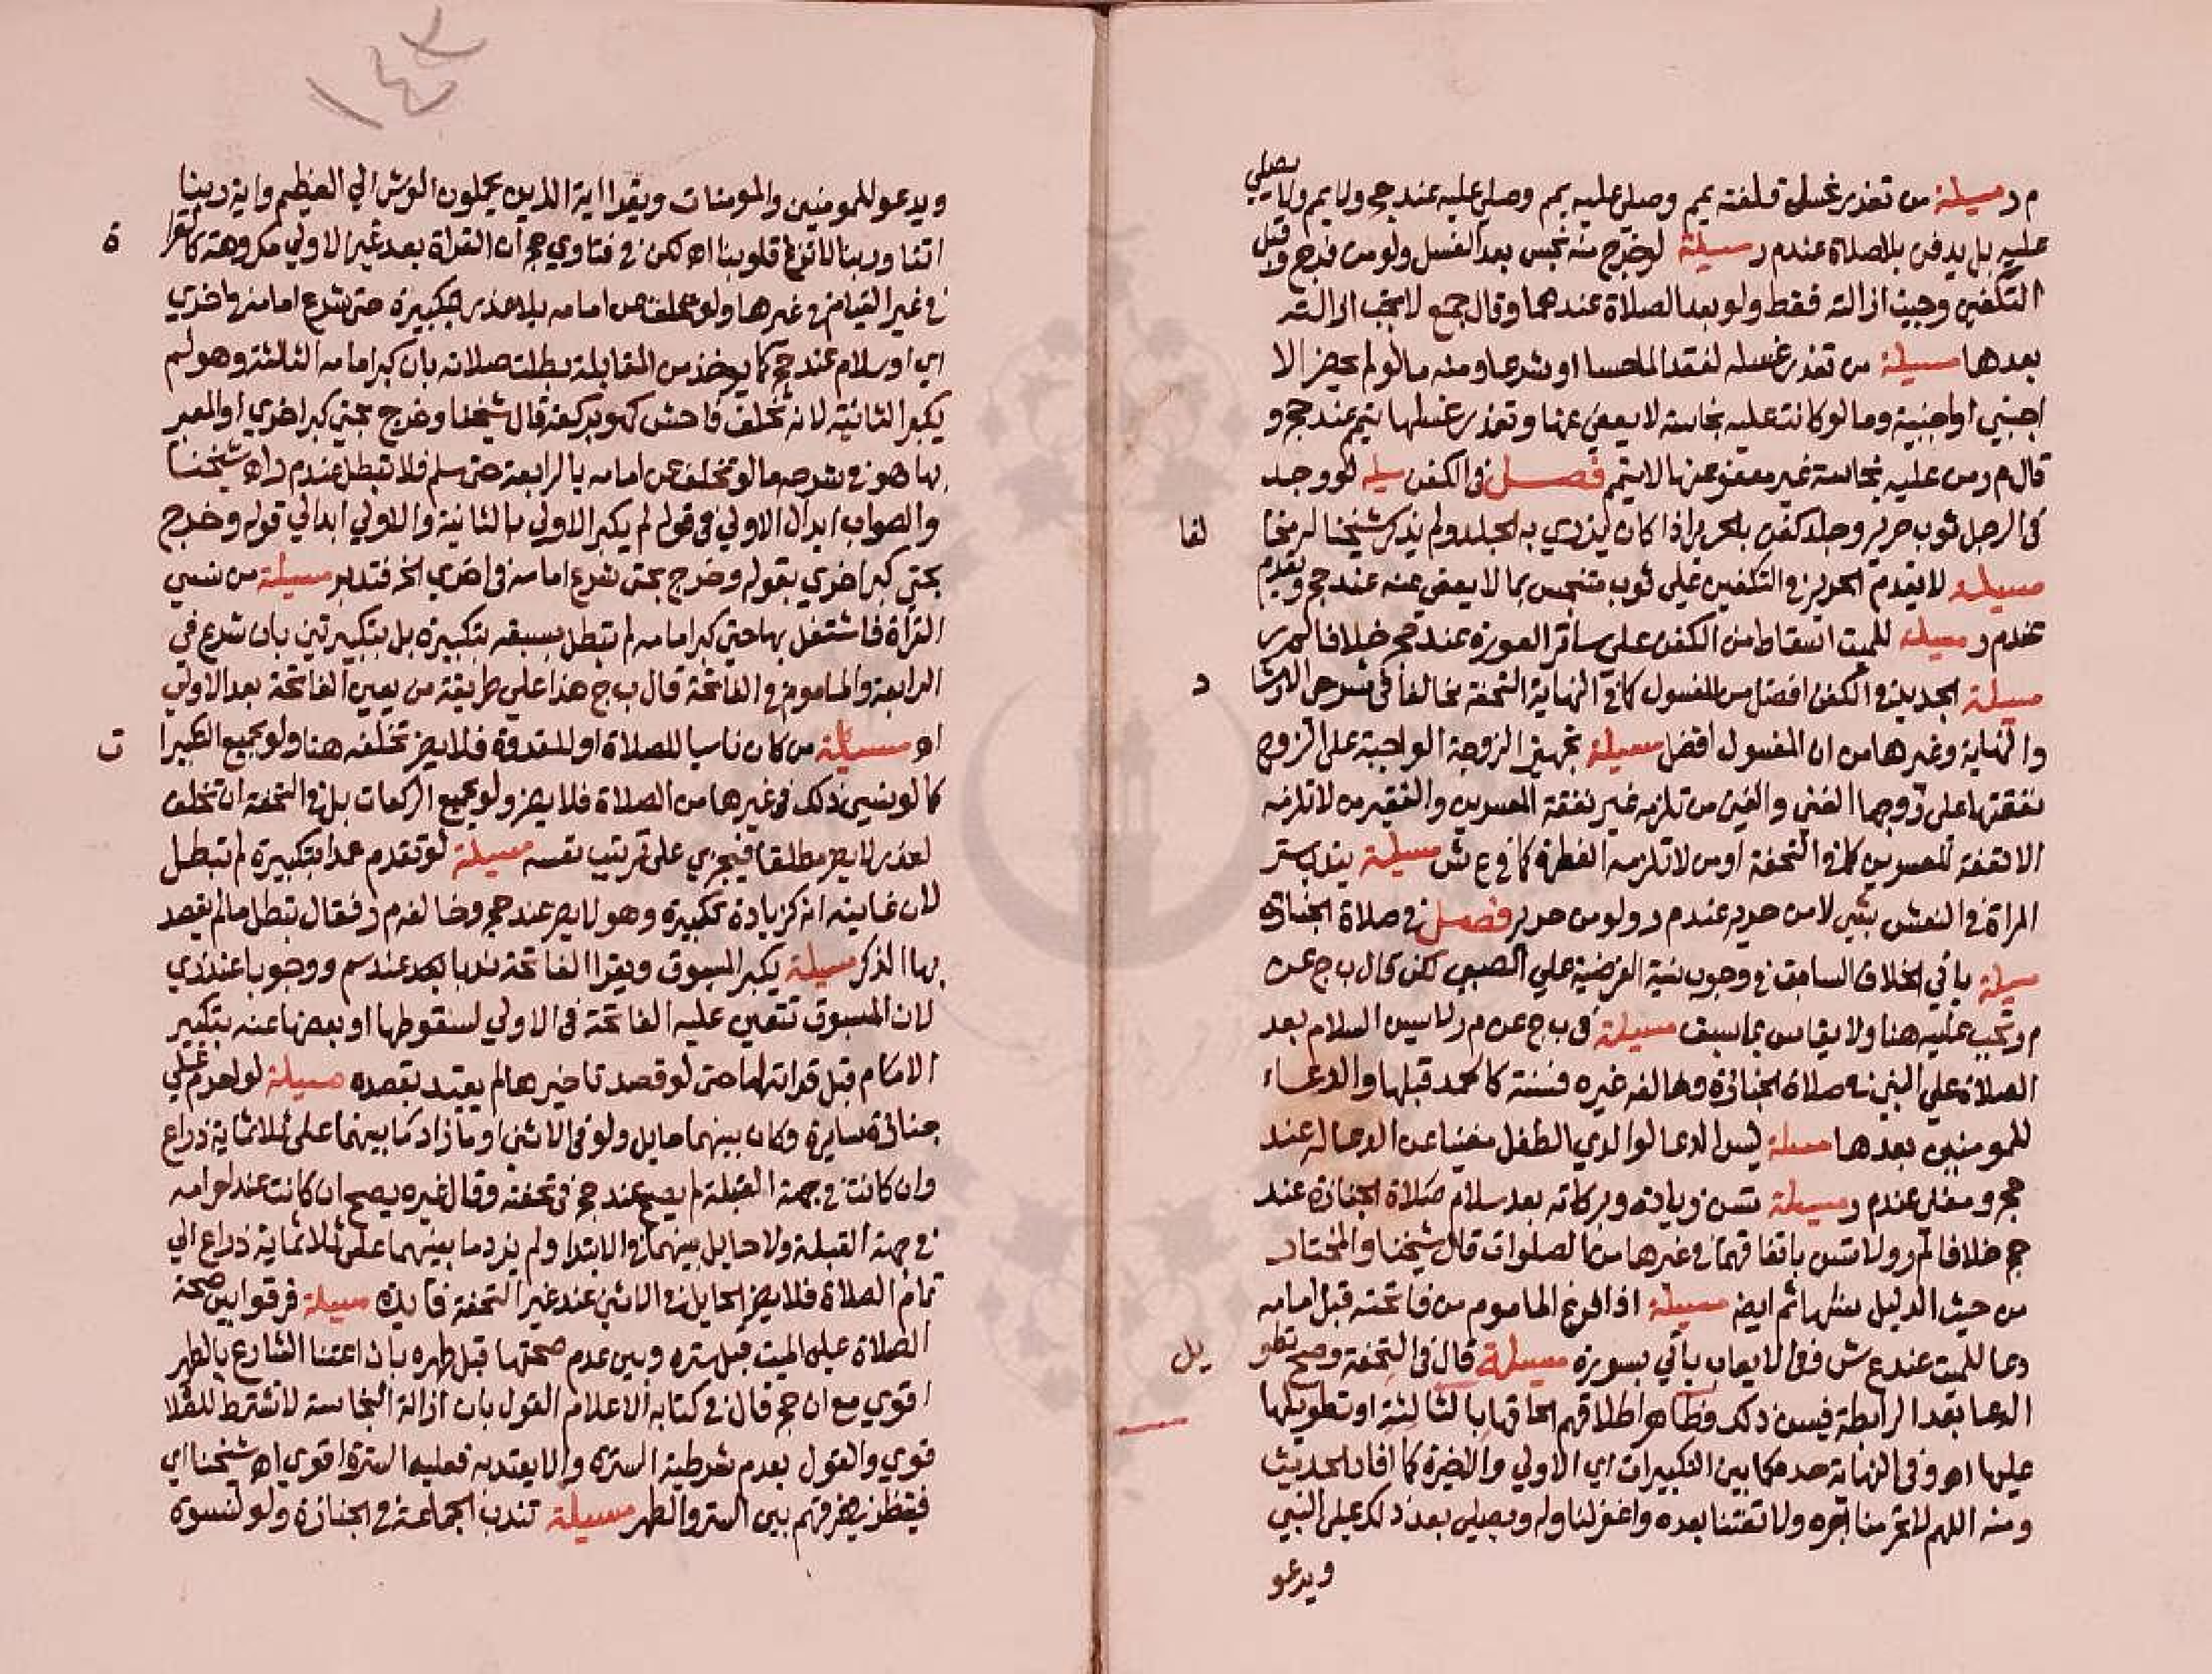 م ر مسيلة من تعذر غسل قلفته يمم وصلي عليه يمم وصلي عليه عند حج ولا يمم ولا يصلي
عليه بل يدفن بلا صلاة عندم ر مسيلة لو خرج منه نجس بعد الغسل ولو من فرج وقبل
التكفين وجبت ازالته فقط ولو بعد الصلاة عندهما وقال جمع لا تجب ازالته
بعدها مسيلة من تعذر غسله لفقد الما حسا او شرعا ومنه ما لو لم يحضر الا
اجنبي او اجنبية وما لو كانت عليه نجاسة لا يعفي عنها وتعذر غسلها يتيمم عند حج و
قال م ر من عليه نجاسة غير معفو عنها لا يتيمم فصل في الكفن مسيلة لو وجد
في الرجل ثوب حرير وجلد كفن بالحرير اذا كان يزري به الجلد ولم يذكر شيخنا لهم مخا
لفا
مسيلة لا يقدم الحرير في التكفين علي ثوب متنجس بما لا يعفي عنه عند حج ويقدم
عندم ر مسيلة للميت اسقاط من الكفن علي ساتر العورة عند حج خلافا لم ر
مسيلة الجديد في الكفن افضل من المغسول كما في النهاية التحفة مخالفا في شرحي الارشا
د
والنهاية وغيرها من ان المغسول افضل مسيلة تجهيز الزوجة الواجبة علي الزوج
نفقتها علي زوجها الغني والغني من تلزمه غير نفقة المعسرين والفقير من لا تلزمه
الا نفقة المعسرين كما في التحفة او من لا تلزمه الفطرة كما في ع ش مسيلة يندب ستر
المراة في النعش بشي لا من حرير عندم ر ولو من حرير فصل في صلاة الجنازة
مسيلة ياتي الخلاف السابق في وجوب نية الفرضية علي الصبي لكن قال ب ج عن
م ر تجب عليه هنا ولا يقاس بما سبق مسيلة في ب ج عن م ر لا يسن السلام بعد
الصلاة علي النبي في صلاة الجنازة وخالفه غيره فسنته كالحمد قبلها والدعاء
للمومنين بعدها مسيلة ليس الدعا لوالدي الطفل مغنيا عن الدعا له عند
حج ومغني عندم ر مسيلة تسن زيادة وبركاته بعد سلام صلاة الجنازة عند
حج خلافا لم ر ولا تسن باتفاقهما في غيرها من الصلوات قال شيخنا والمختار
من حيث الدليل سنها ثم ايضا مسيلة اذا فرغ الماموم من فاتحته قبل امامه
دعا للميت عند ع ش وفي الايعاب ياتي بسورة مسيلة قال في التحفة وصح تطو
يل
الدعا بعد الرابطة فيسن ذلك وظاهر اطلاقهم الحاقها بالثالثة او تطويلها
عليها اه وفي النهاية حده كما بين التكبيرات اي الاولي والاخيرة كما افاد الحديث
ومنه اللهم لا تحرمنا اجره ولا تفتنا بعده واغفر لنا وله ويصلي بعد ذلك علي النبي
ويدعو
١٤٢
ويدعو للمومنين والمومنات ويقرا اية الذين يحملون العرش الي العظيم واية ربنا
اتنا وربنا لا تزغ قلوبنا اه لكن في فتاوي حج ان القراة بعد غير الاولي مكروهة كالقرا
ة
في غير القيام في غيرها ولو تخلف عن امامه بلا عذر بتكبيرة حتي شرع امامه في اخري
اي او سلام عند حج كما يوخذ من المقابلة بطلت صلاته بان كبر امامه الثالثة وهو لم
يكبر الثانية لانه تخلف فاحش كهو بركعة قال شيخنا وخرج بحتي كبر اخري او المعبر
بها هو في شرحه ما لو تخلف عن امامه بالرابعة حتي سلم فلا تبطل عندم ر اه شيخنا
والصواب ابدال الاولي في قوله لم يكبر الاولي بالثانية والاولي ابدال قوله وخرج
بحتي كبر اخري بقوله وخرج بحتي شرع امامه في اخري الخ فتدبر مسيلة من نسي
القراة فاشتغل بها حتي كبر امامه لم تبطل بسبقه بتكبيرة بل بتكبيرتين بان شرع في
الرابعة والماموم في الفاتحة قال ب ج هذا علي طريقة من يعين الفاتحة بعد الاولي
اه مسيلة من كان ناسيا للصلاة او للقدوة فلا يضر تخلفه هنا ولو بجميع التكبيرا
ت
كما لو نسي ذلك في غيرها من الصلاة فلا يضر ولو بجميع الركعات بل في التحفة ان تخلف
لعذر لا يضر مطلقا فيجري علي ترتيب نفسه مسيلة لو تقدم عمدا بتكبيرة لم تبطل
لان غايته انه كزيادة تكبيرة وهو لا يضر عند حج وخالفه م ر فقال تبطل ما لم يقصد
بها الذكر مسيلة يكبر المسبوق ويقرا الفاتحة ندبا بعد عندسم ووجوبا عند زي
لان المسبوق تتعين عليه الفاتحة في الاولي لسقوطها او بعضها عنه بتكبير
الامام قبل قراته لها حتي لو قصد تاخيرها لم يعتد بقصده مسيلة لو احرم علي
جنازة سايرة وكان بينهما حايل ولو في الاثنا او ما زاد ما بينهما علي ثلاثماية ذراع
وان كانت في جهة القبلة لم يصح عند حج في تحفته وقال غيره يصح ان كانت عند احرامه
في جهة القبلة ولا حايل بينهما في الابتدا ولم يزد ما بينهما علي ثلاثماية ذراع الي
تمام الصلاة فلا يضر الحايل في الاثنا عند غير التحفة فايدة مسيلة فرقوا بين صحة
الصلاة علي الميت قبل ستره وبين عدم صحتها قبل طهره بان اعتنا الشارع بالطهر
اقوي مع ان حج قال في كتابه الاعلام القول بان ازالة النجاسة لا تشترط للصلا
قوي والقول بعدم شرطية السترة والا يعتد به فعليه السترة اقوي اه شيخنا اي
فينظر في فرقهم بين الستر والطهر مسيلة تندب الجماعة في الجنازة ولو لنسوة